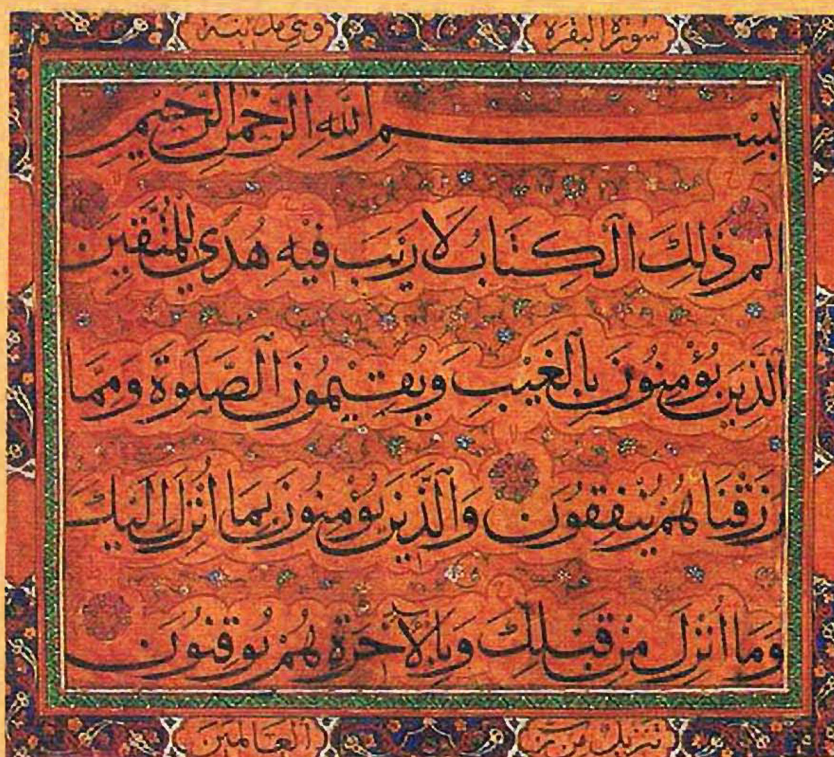 سورة البقرة وهي مدنية
بِسْمِ اللَّهِ الرَّحْمَنِ الرَّحِيمِ
الم ذَلِكَ الْكِتَابُ لَا رَيْبَ فِيهِ هُدًى لِلْمُتَّقِينَ
الَّذِينَ يُؤْمِنُونَ بِالْغَيْبِ وَيُقِيمُونَ الصَّلَوةَ وَمِمَّا
رَزَقْنَاهُمْ يُنْفِقُونَ وَالَّذِينَ يُؤْمِنُونَ بِمَا أُنْزِلَ إِلَيْكَ
وَمَا أُنْزِلَ مِنْ قَبْلِكَ وَبِالْآخِرَةِ هُمْ يُوقِنُونَ
تنزيل من رب العالمين